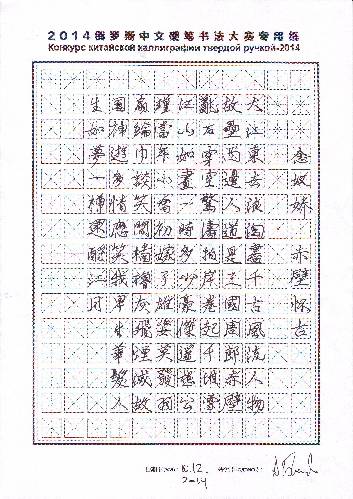 2014俄罗斯中文硬笔书法大赛专用纸
Конкурс китайской каллиграфии твердой ручкой-2014
念奴嬌 赤壁怀古
大江東去浪淘盡千古風流人物
故壘西邊人道是三國周郎赤壁
亂石穿空驚濤拍岸卷起千堆雪
江山如畫一時多少豪傑遥想公
瑾當年小喬初嫁了雄姿英發羽
扇綸巾談笑間檣櫓灰飛煙滅故
國神遊多情應笑我早生華髮人
生如夢一樽還酹江月
10.12.
2014